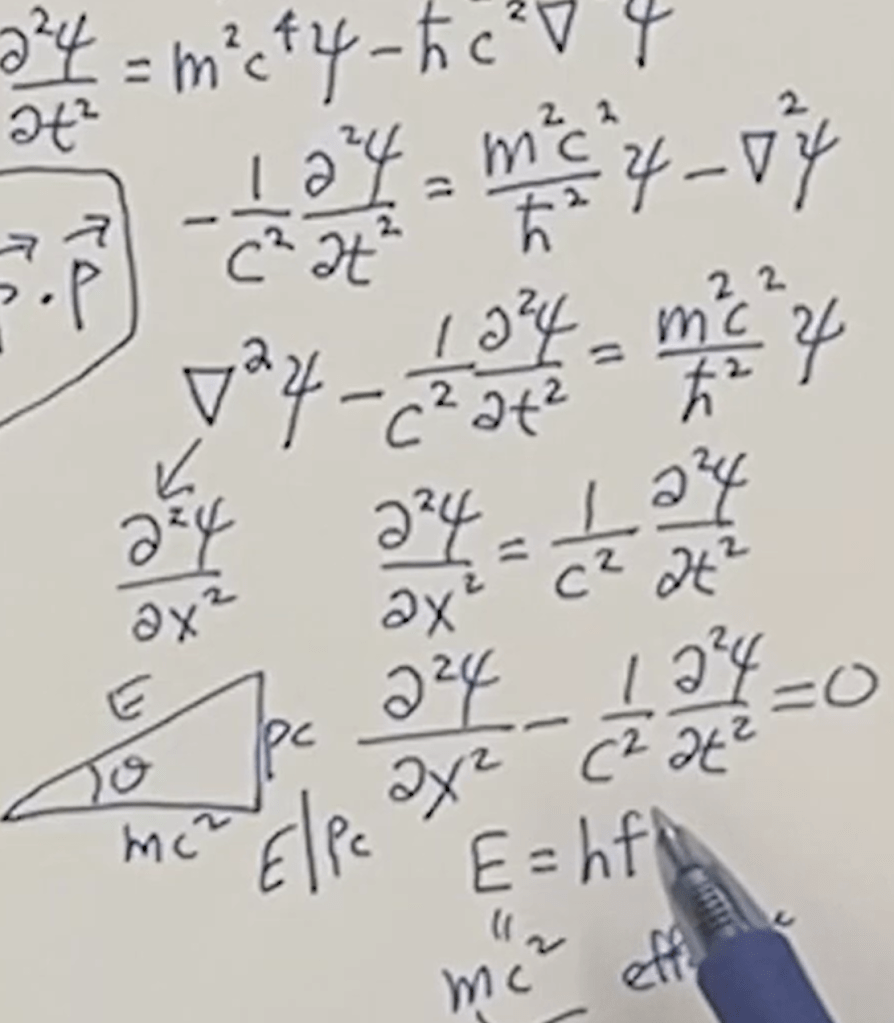 ∂²ψ/∂t² = m²c⁴ψ − ħ c²∇ ψ
−1/c² ∂²ψ/∂t² = m²c²/ħ² ψ − ∇²ψ
p⃗ · p⃗
∇²ψ − 1/c² ∂²ψ/∂t² = m²c²/ħ² ψ
∂²ψ/∂x²
∂²ψ/∂x² = 1/c² ∂²ψ/∂t²
E
pc
θ
mc²
∂²ψ/∂x² − 1/c² ∂²ψ/∂t² = 0
E|Pc
E = hf
"
mc²